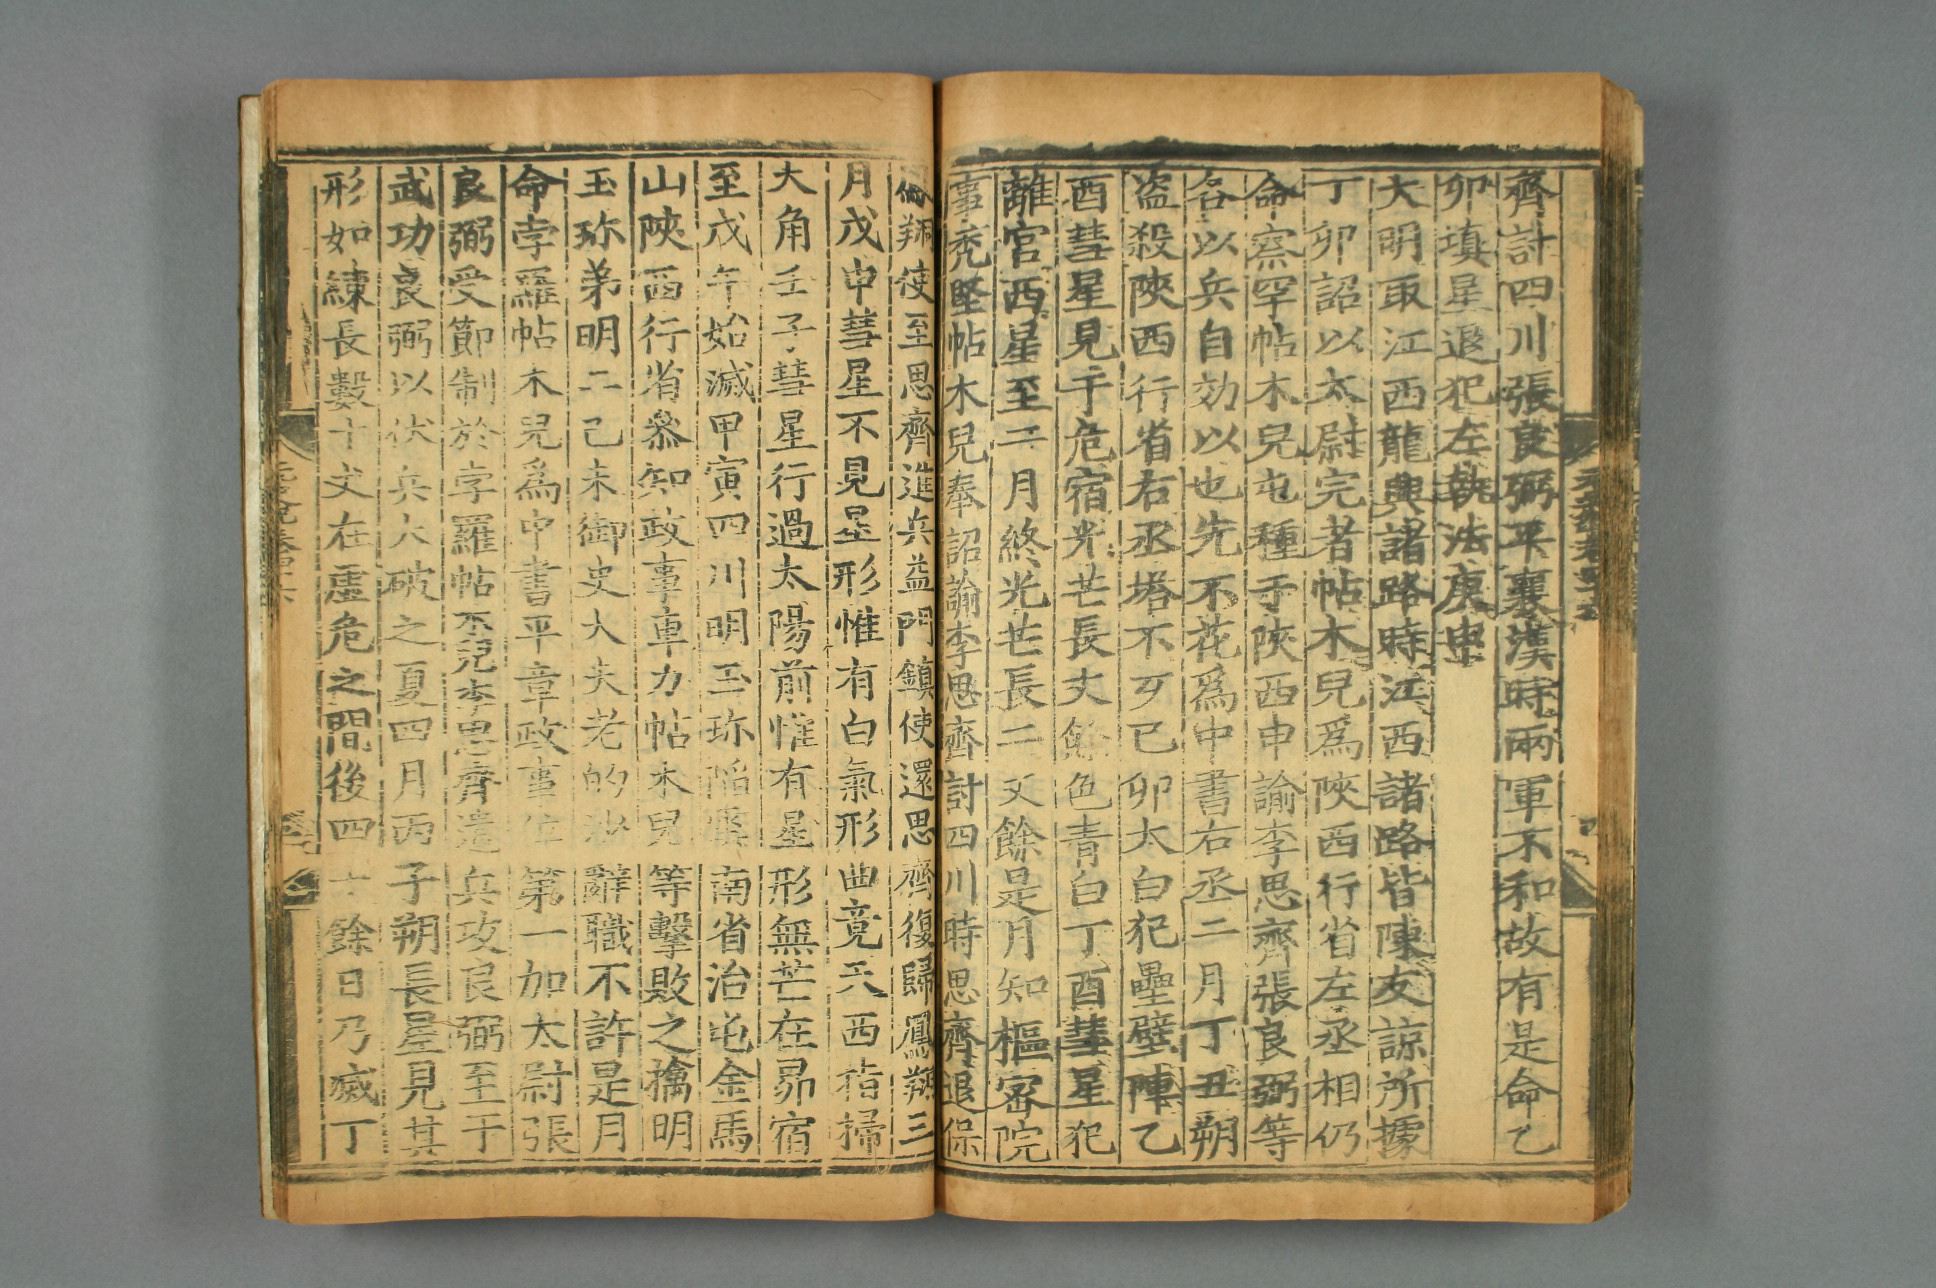 齊討四川張良弼平襄漢時兩軍不和故有是命乙
卯塡星退犯左執法庚申
大明取江西龍興諸路時江西諸路皆陳友諒所據
丁卯詔以太尉完者帖木兒爲陝西行省左丞相仍
命察罕帖木兒屯種于陝西申諭李思齊張良弼等
各以兵自効以也先不花爲中書右丞二月丁丑朔
盜殺陝西行省右丞塔不歹己卯太白犯壘壁陣乙
酉彗星見于危宿光芒長丈餘色青白丁酉彗星犯
離宮西星至二月終光芒長二丈餘是月知樞密院
事禿堅帖木兒奉詔諭李思齊討四川時思齊退保
鳳翔使至思齊進兵益門鎮使還思齊復歸鳳翔三
月戊申彗星不見星形惟有白氣形曲竟天西指掃
大角壬子彗星行過太陽前惟有星形無芒在昴宿
至戊午始滅甲寅四川明玉珍陷雲南省治屯金馬
山陝西行省參知政事車力帖木兒等擊敗之擒明
玉珍弟明二己未御史大夫老的沙辭職不許是月
命孛羅帖木兒爲中書平章政事位第一加太尉張
良弼受節制於孛羅帖木兒李思齊遣兵攻良弼至于
武功良弼以伏兵大破之夏四月丙子朔長星見其
形如練長數十丈在虛危之間後四十餘日乃滅丁